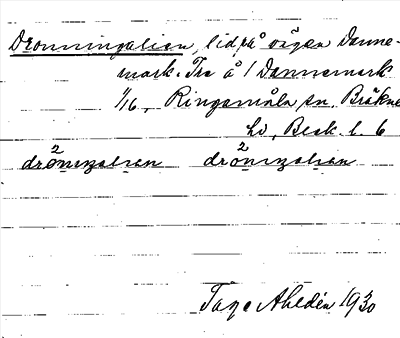 Dronningalien, lid på vägen Danne-
mark. Tre å / Dannemark
1/16, Ringamåla sn, Bräkne
hd, Beak. l. 6
drö2ningalian drö2ningalian
Tage Ahldén 1930